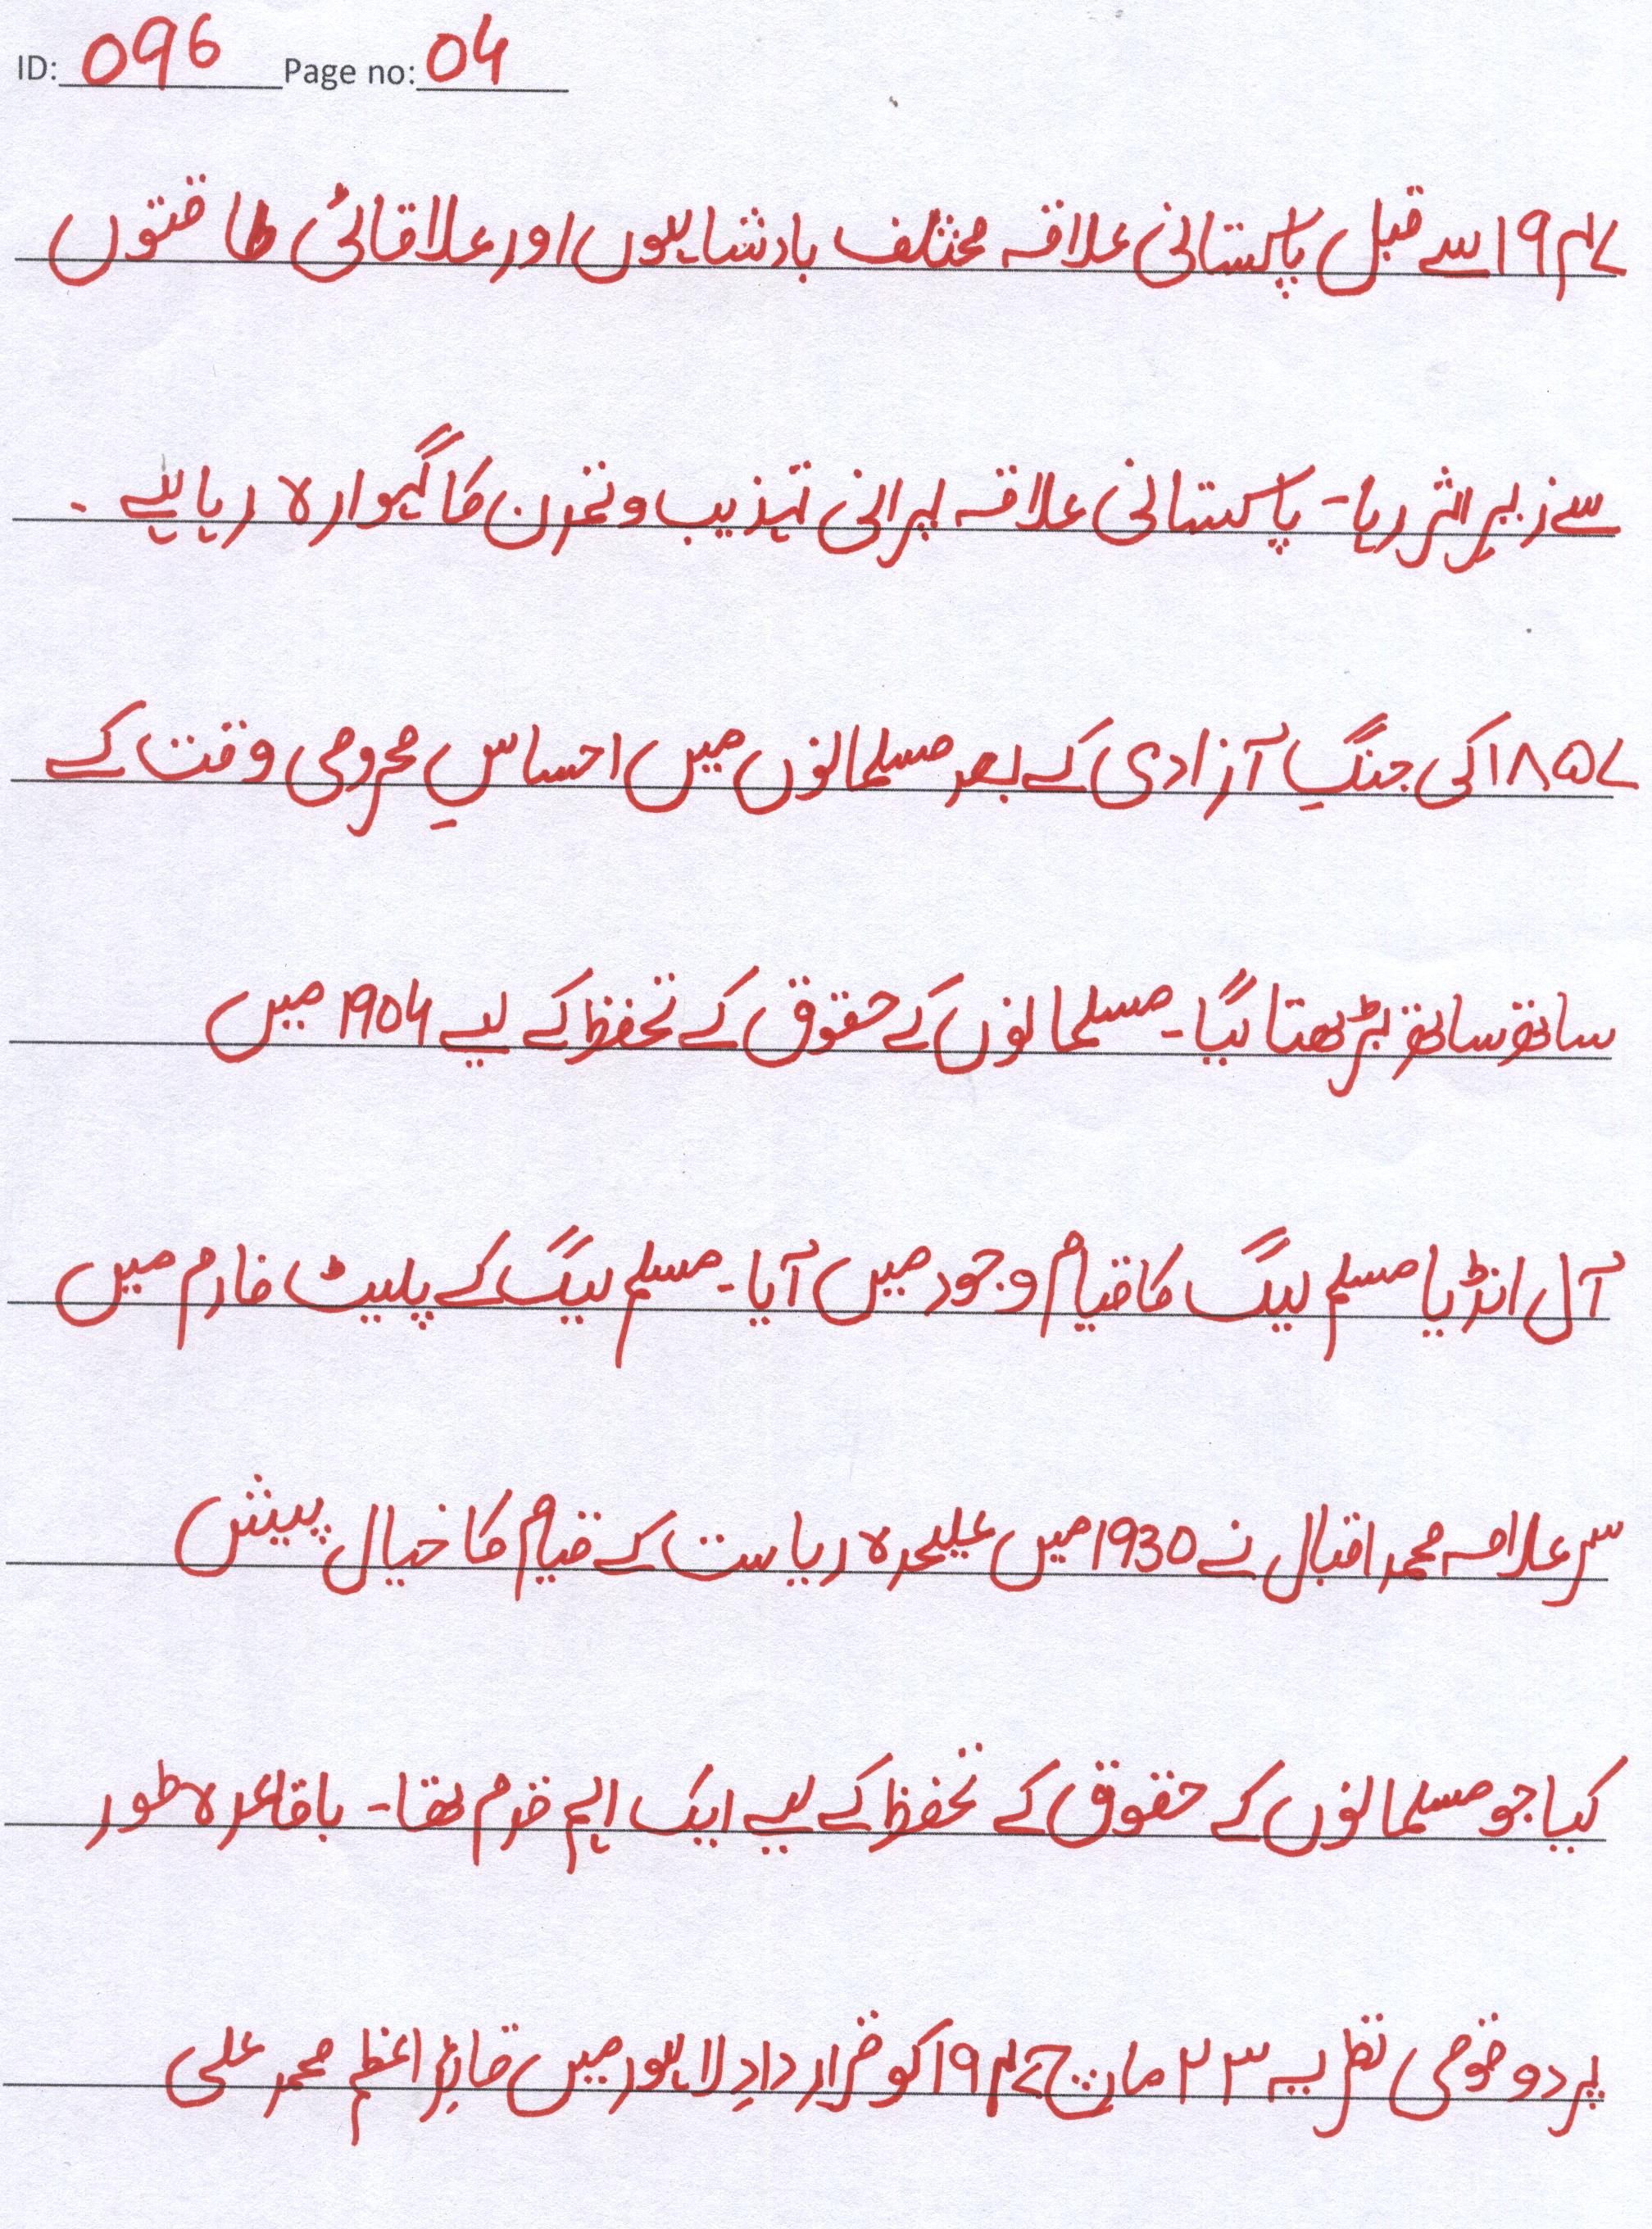 ID: 096 Page no: 04
۱۹۴۷ سے قبل پاکستانی علاقہ مختلف بادشاہوں اور علاقائی طاقتوں
سے زیرِ اثر رہا۔ پاکستانی علاقہ ایرانی تہذیب و تمدن کا گہوارہ رہا ہے ۔
۱۸۵۷ کی جنگِ آزادی کے بعد مسلمانوں میں احساسِ محرومی وقت کے
ساتھ ساتھ بڑھتا گیا۔ مسلمانوں کے حقوق کے تحفظ کے لیے ۱۹۰۶ میں
آل انڈیا مسلم لیگ کا قیام وجود میں آیا۔ مسلم لیگ کے پلیٹ فارم میں
سر علامہ محمد اقبال نے 1930 میں علیحدہ ریاست کے قیام کا خیال پیش
کیا جو مسلمانوں کے حقوق کے تحفظ کے لیے ایک اہم قدم تھا۔ باقاعدہ طور
پر دو قومی نظریہ ۲۳ مارچ ۱۹۴۷ کو قرار دادِ لاہور میں قائدِ اعظم محمد علی